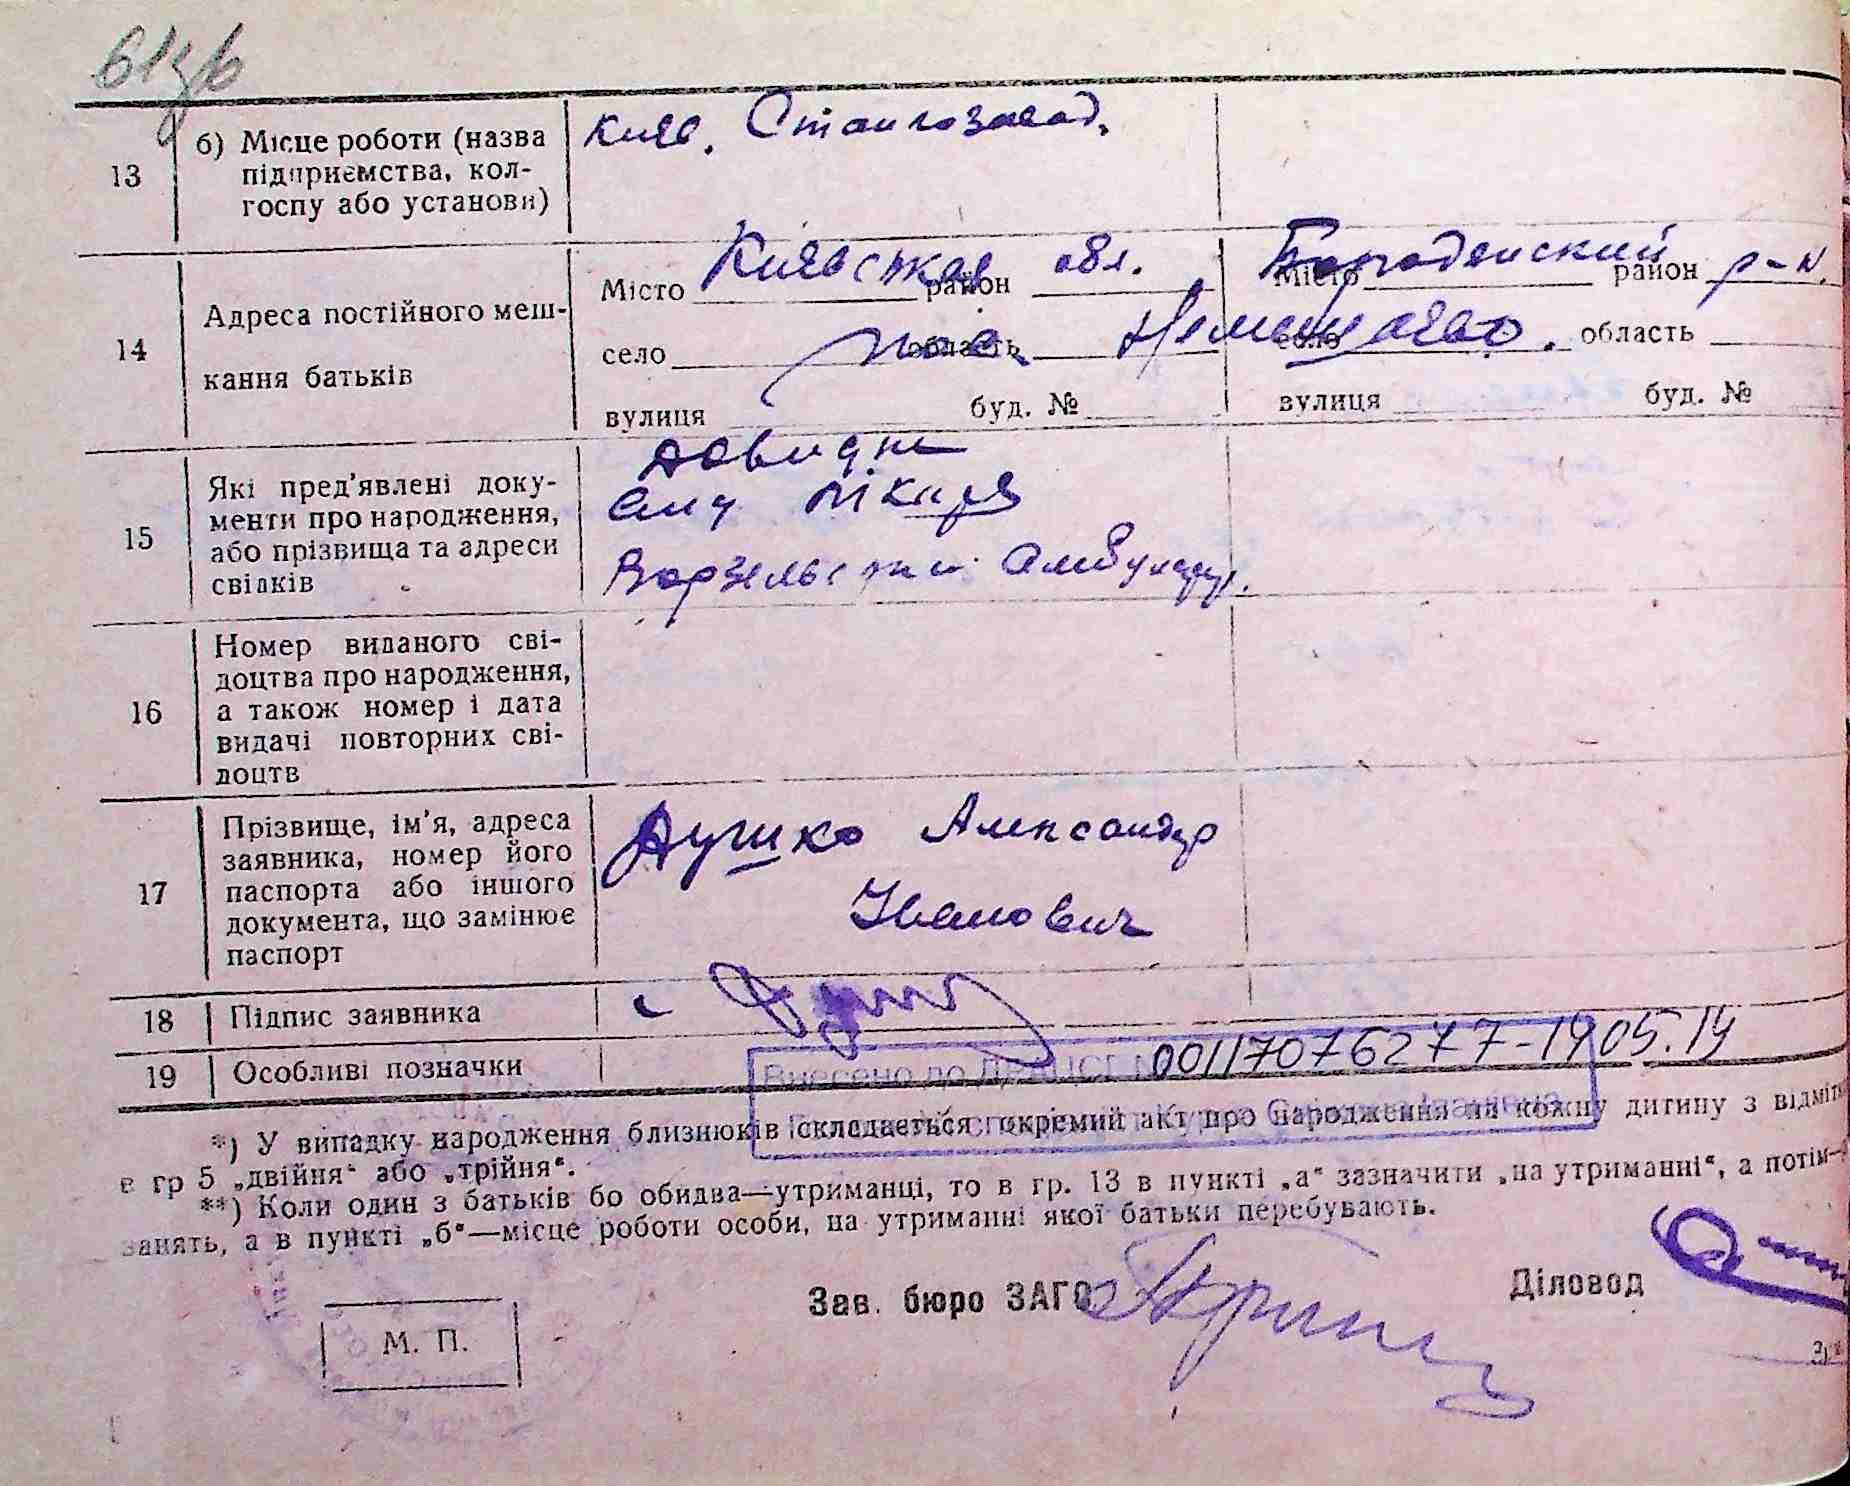 13
б) Місце роботи (назва
підприємства, кол-
госпу або установи)
Київ. Станкозавод.
14
Адреса постійного меш-
кання батьків
Київська обл. Бородянский р-н.
Місто район Місто район
пос. Немешаево.
село область село область
вулиця буд. № вулиця буд. №
15
Які пред'явлені доку-
менти про народження,
або прізвища та адреси
свідків
Довидка
лікаря
Ворзельськи Амбулат.
16
Номер виданого сві-
доцтва про народження,
а також номер і дата
видачі повторних сві-
доцтв
17
Прізвище, ім'я, адреса
заявника, номер його
паспорта або іншого
документа, що замінює
паспорт
Душко Александр
Іванович
18 Підпис заявника
19 Особливі позначки
Внесено до ДРАЦСГ № 00117076277-14.05.19
*) У випадку народження близнюків складається окремий акт про народження на кожну дитину з відміткою
в гр 5 „двійня“ або „трійня“.
**) Коли один з батьків бо обидва—утриманці, то в гр. 13 в пункті „а“ зазначити „на утриманні“, а потім
занять, а в пункті „б“—місце роботи особи, на утриманні якої батьки перебувають.
Зав. бюро ЗАГС
Діловод
М. П.